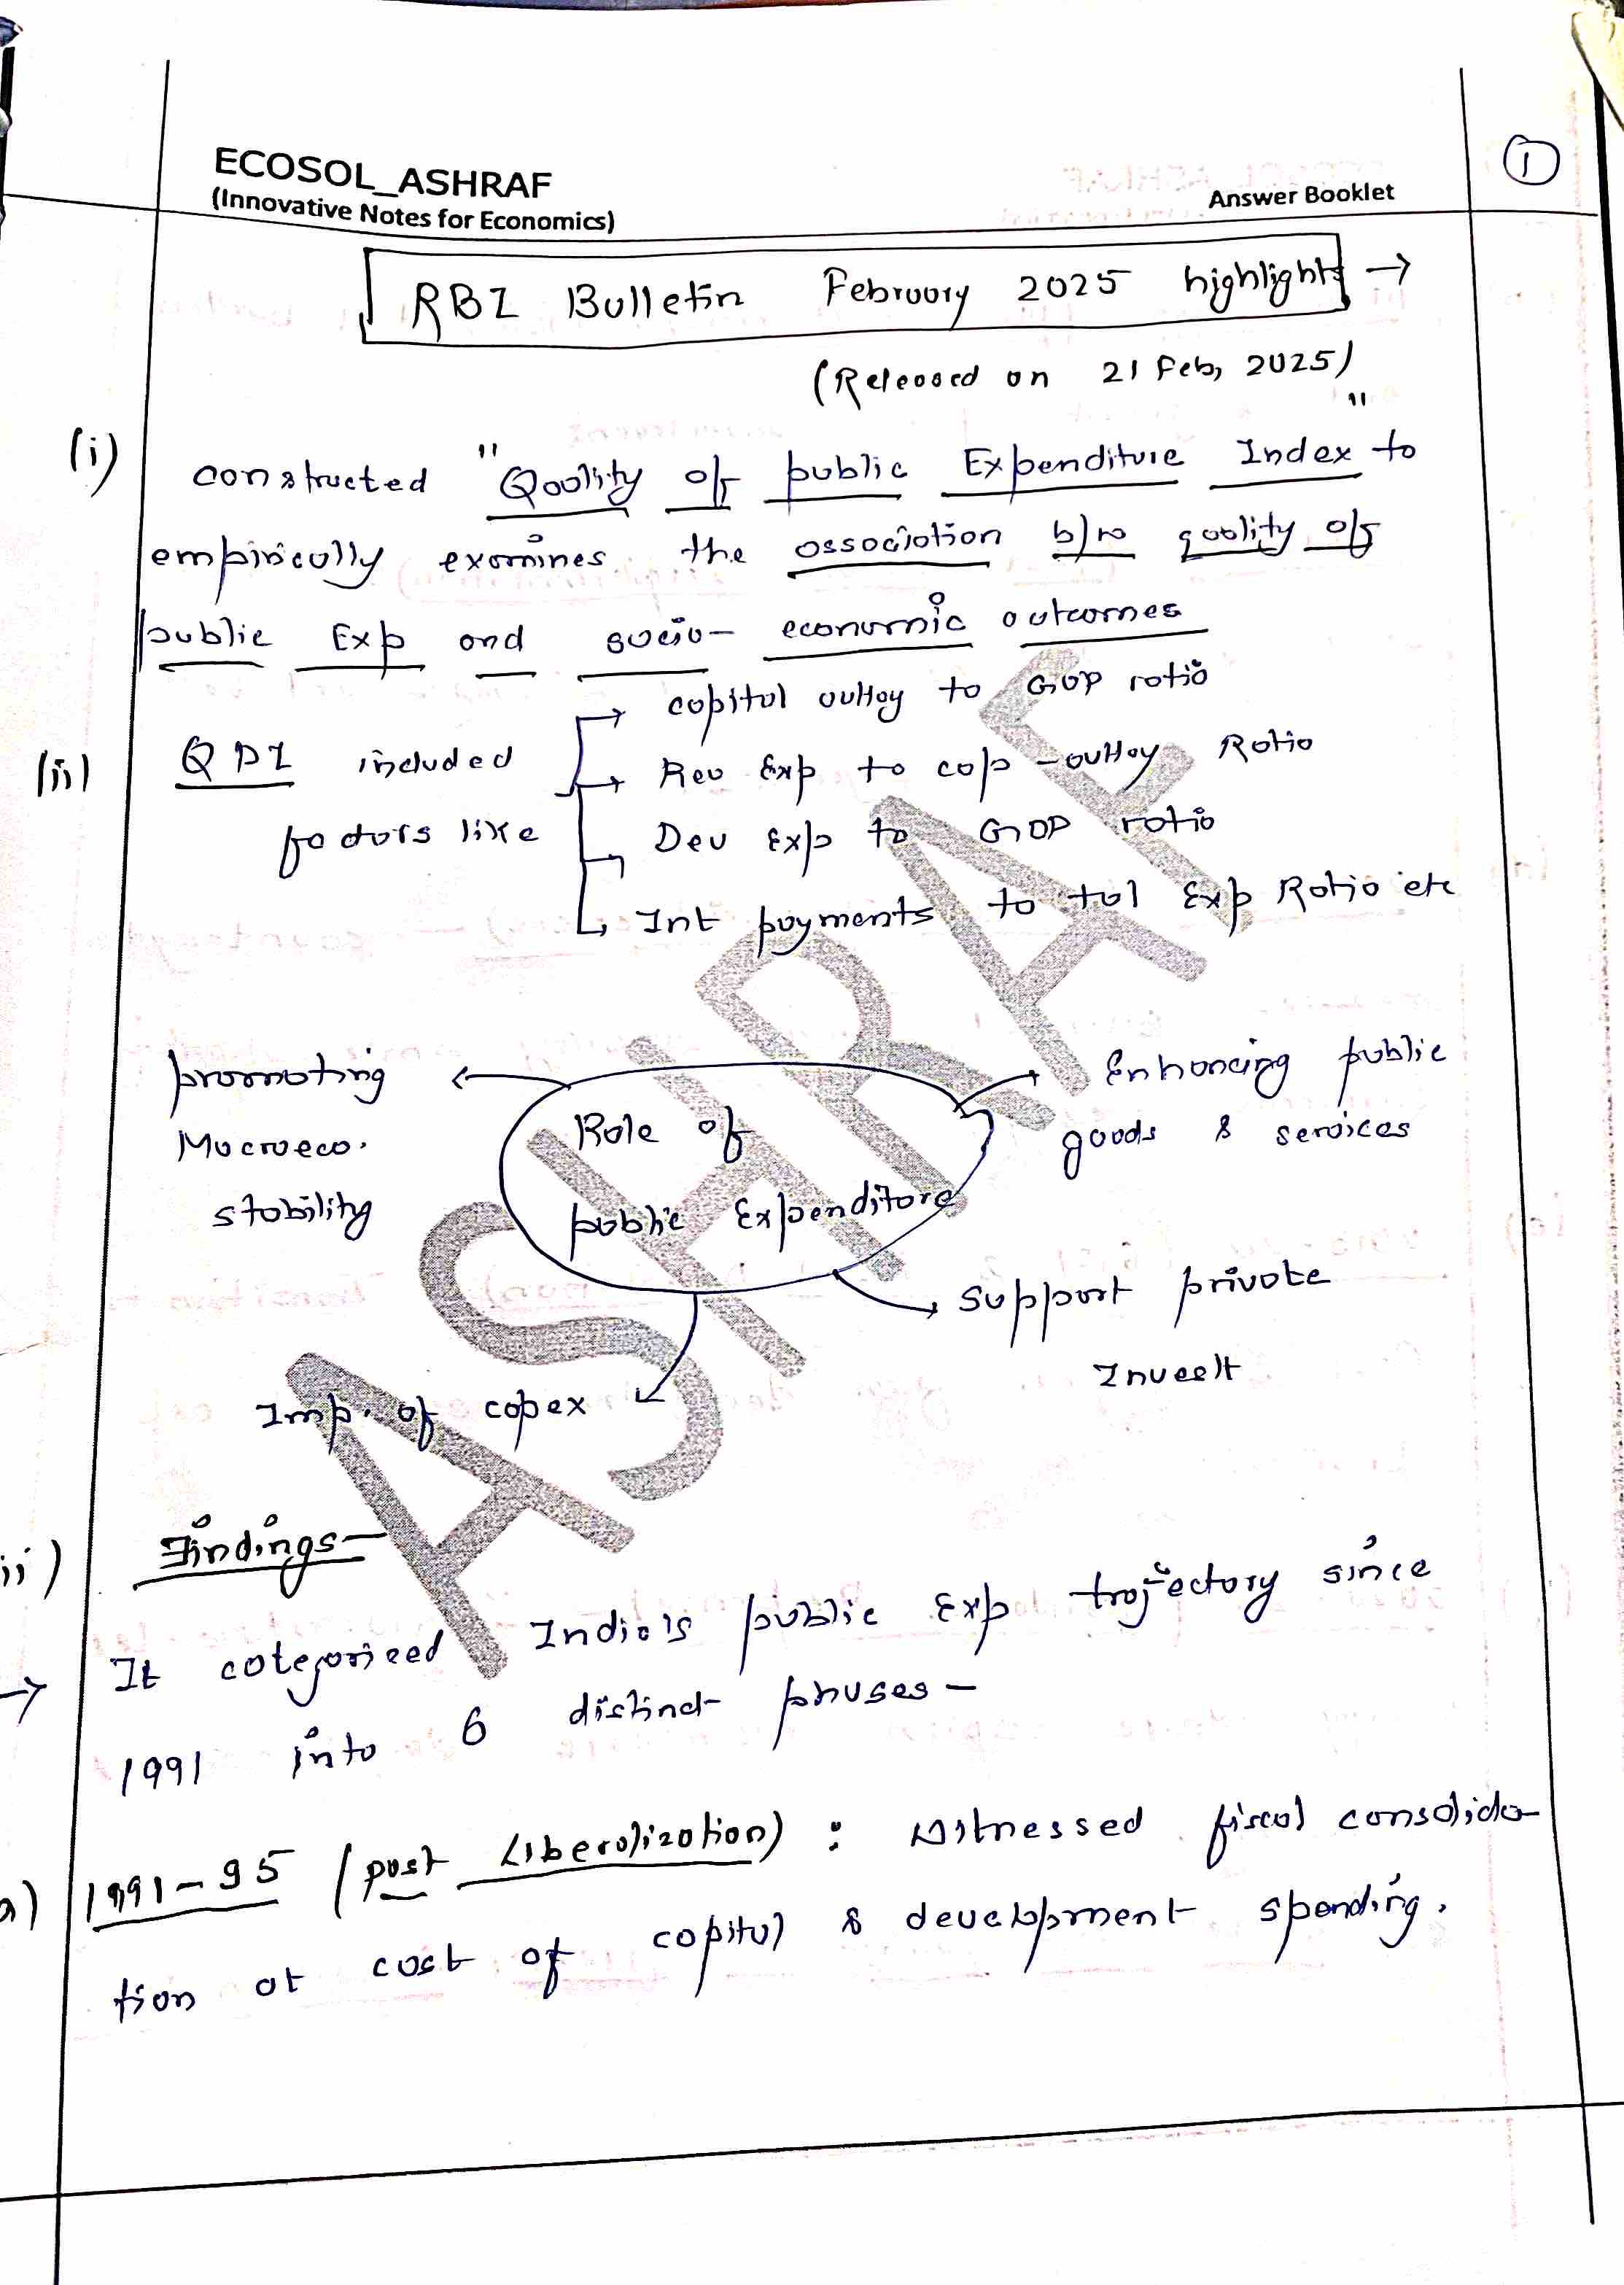 ECOSOL_ASHRAF
(Innovative Notes for Economics)
Answer Booklet
1
RBI Bulletin February 2025 highlights →
(Released on 21 Feb, 2025)
(i) constructed "Quality of public Expenditure Index" to
empirically examines the association b/w quality of
public Exp and socio-economic outcomes
(ii) QPI included
factors like
→ capital outlay to GDP ratio
→ Rev Exp to cap-outlay Ratio
→ Dev Exp to GDP ratio
→ Int payments to tol Exp Ratio etc
Role of
public Expenditure
promoting
Macroeco.
stability
Enhancing public
goods & services
support private
Invest
Imp. of capex
ii) Findings-
→ It categorised India's public Exp trajectory since
1991 into 6 distinct phases -
a) 1991-95 (post Liberalization) : Witnessed fiscal consolida-
tion at cost of capital & development spending.
ASHRAF